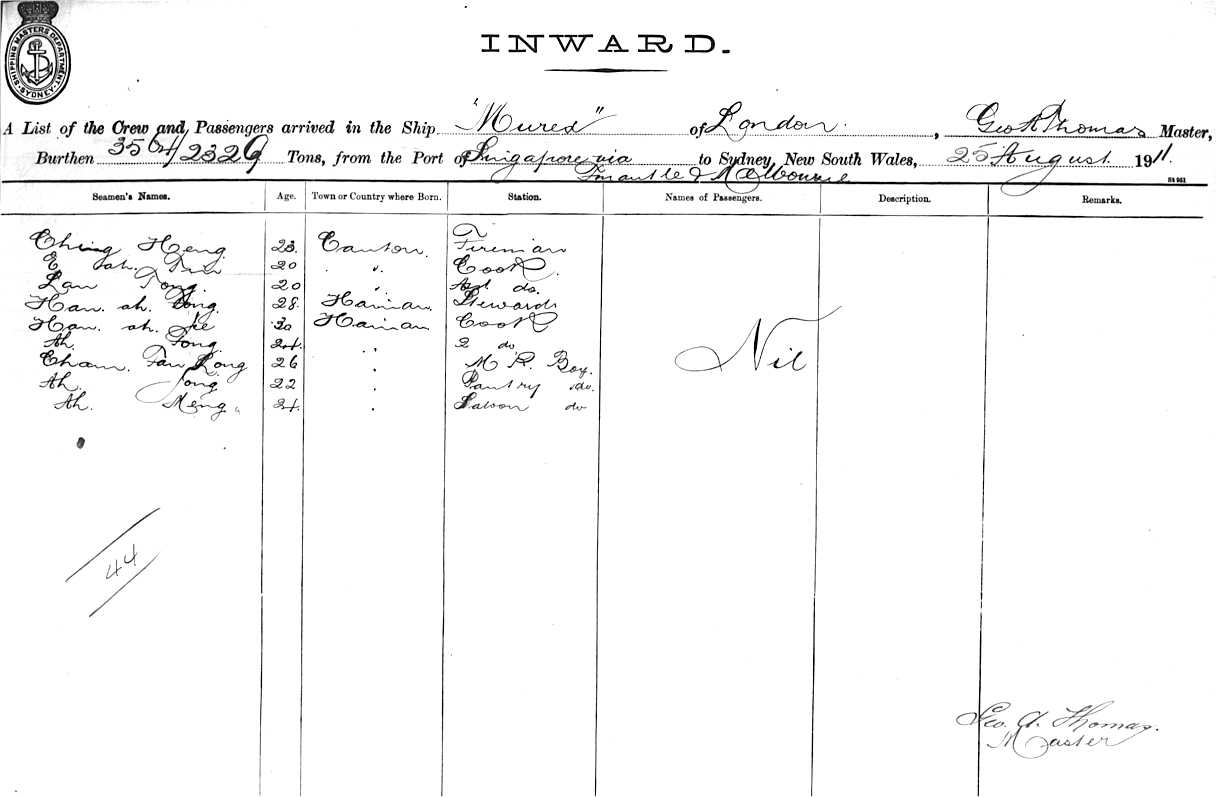 SHIPPING MASTERS DEPARTMENT SYDNEY
INWARD.
A List of the Crew and Passengers arrived in the Ship "Murex" of London, Geo A Thomas Master,
Burthen 3564/2329 Tons, from the Port of Singapore via to Sydney, New South Wales, 25 August 1911.
Fmantle & Melbourne
Seamen's Names. Age. Town or Country where Born. Station. Names of Passengers. Description. Remarks.
Ching Heng 23 Canton. Fireman
20 " Cook.
Lan Tong. 20 " do.
Han. ah. Tong. 28. Hainan. Stewards
Han. ah. 30 Hainan Cook
Ah. Tong. 24. " 2 do
Nil
Cham. Fan Kong 26 " M R. Boy.
Ah. Jong 22 " Pantry do.
Ah. Meng. 24. " Saloon do
44
Geo. A. Thomas.
Master